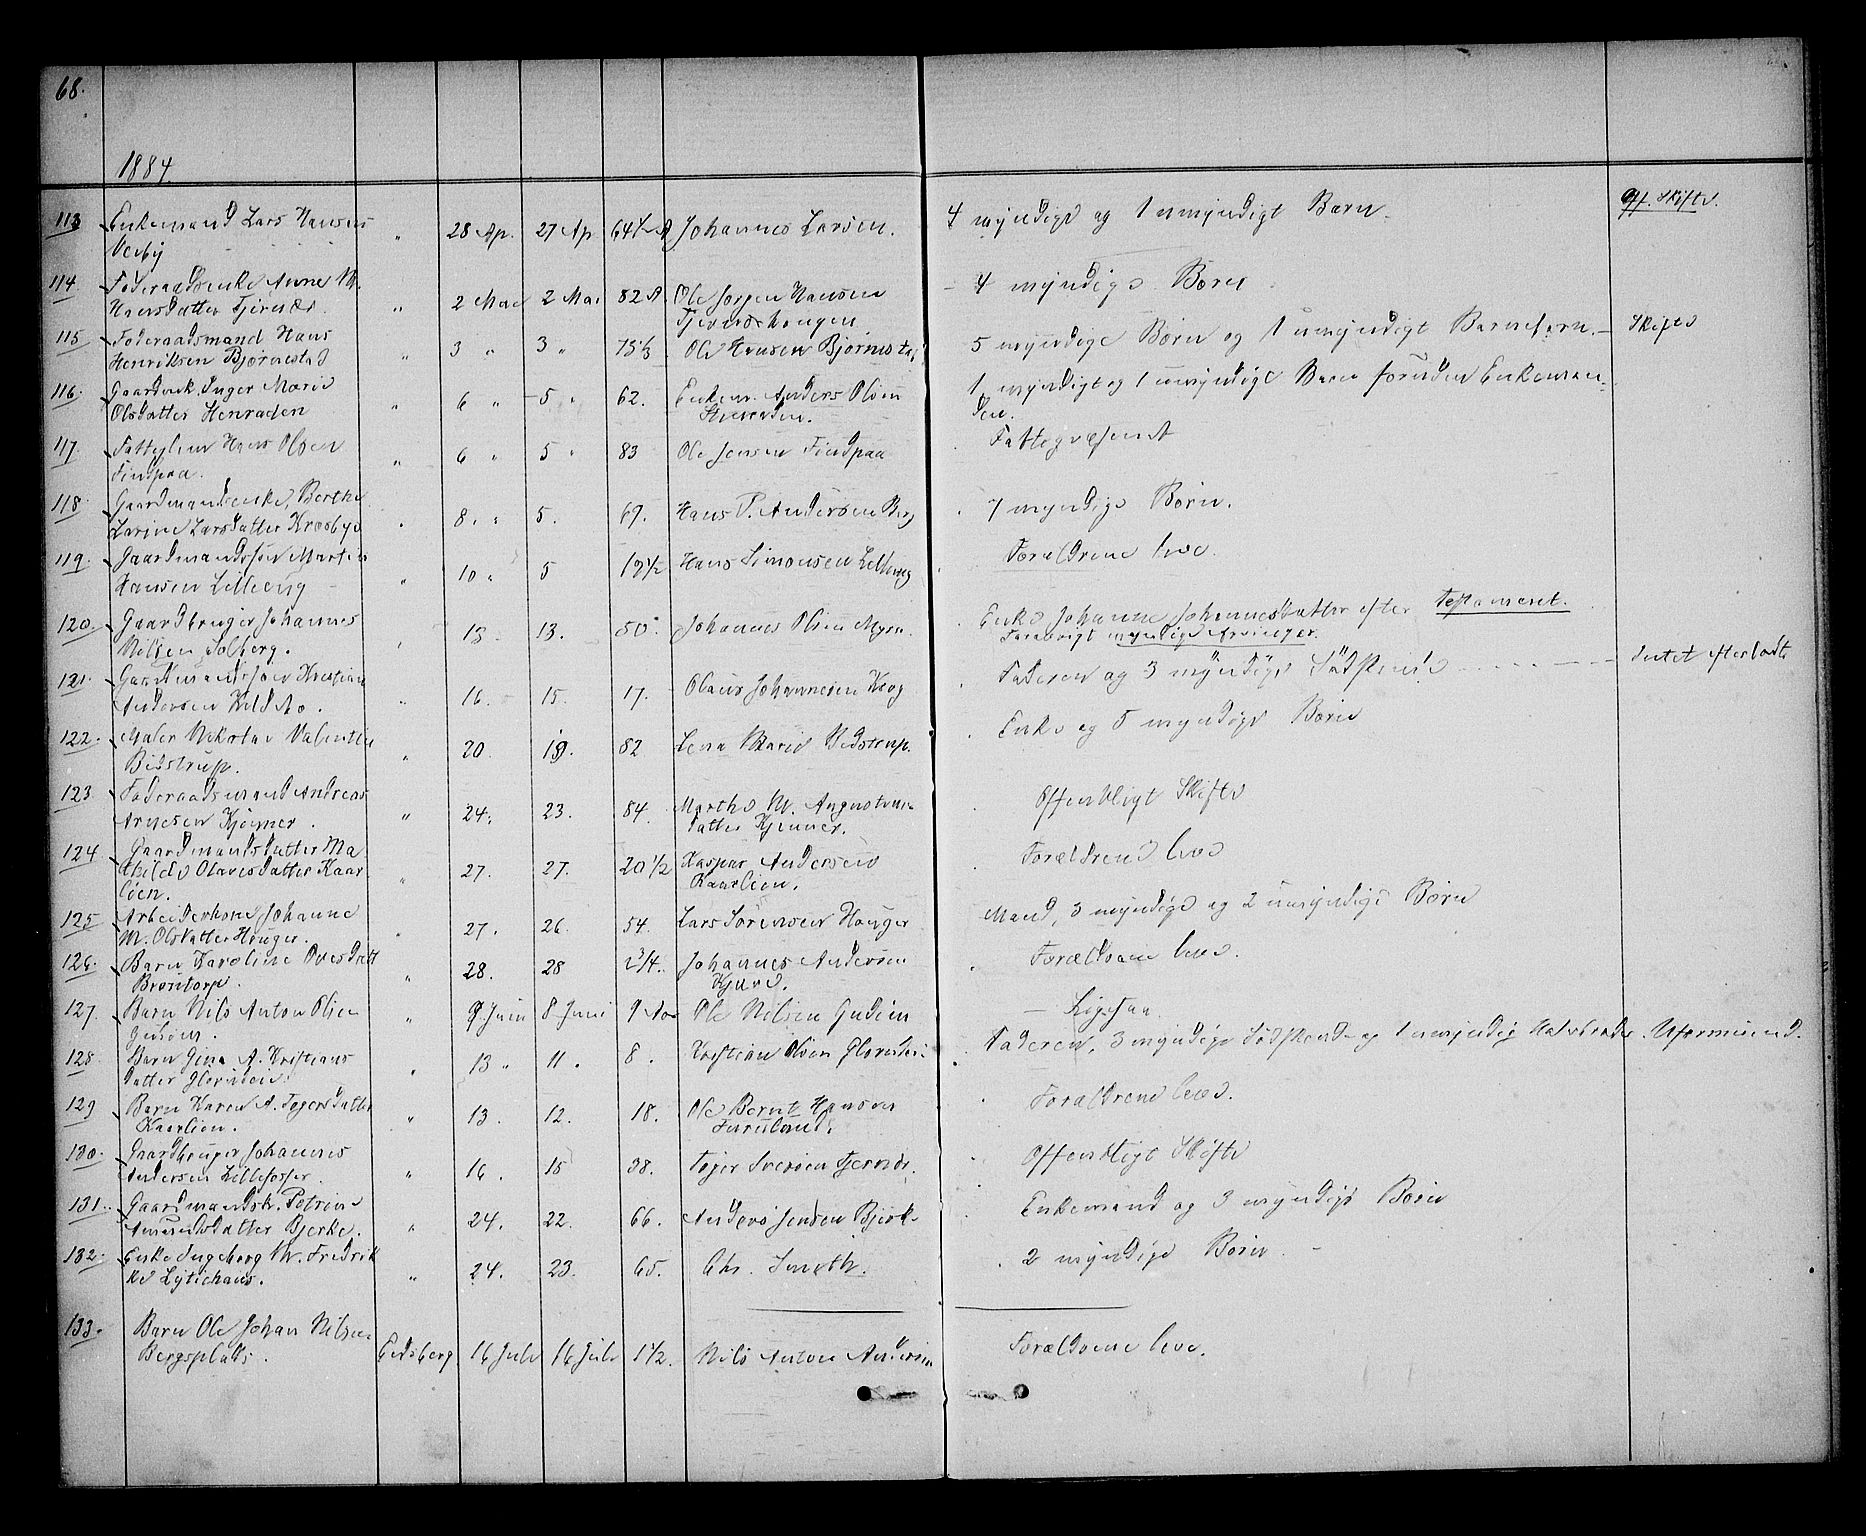 68.
1884.
113 Enkemand Lars Hansen " 28 Ap. 27 Ap 64½ A Johannes Larsen. 4 myndige og 1 umyndigt Barn. Off. Skifte
114 Føderaadsenke Anne M. 4 myndige Børn
Hansdatter Tjernæs. " 2 Mai 2 Mai 82 A. Ole Jørgen Hansen
115 Føderaadsmand Hans 5 myndige Børn og 1 umyndigt Barnebarn. Skifte
Henriksen Bjørnestad " 3 " 3 " 75⅓ Ole Hansen Bjørnestad
116. Gaardmk. Inger Marie 1 myndigt og 1 umyndige Børn foruden Enkeman-
Olsdatter Henraden " 6 " 5 " 62. Enkem. Anders Olsen den.
Henraden.
117. Fattiglem Hans Olsen Fattigvæsenet
Findspaa. " 6 " 5 " 83 Ole Jensen Findspaa
118. Gaardmandsenke, Berthe 7 myndige Børn.
Larine Larsdatter Kræsbye " 8. " 5. 69. Hans P. Andersen Berg
119. Gaardmandssøn Martin Forældrene leve.
Hansen Lilleeng " 10 " 5 19½ Hans Simonsen Lilleeng
120. Gaardbruger Johannes Enke Johanne Johannesdatter efter Testament.
Nilsen Solberg. " 18 13. 50 Johannes Olsen Myrer Forøvrigt myndige Arvinger.
121. Gaardmandssøn Kristian Faderen og 3 myndige Sødskende Intet efterladt
Andersen Kildebo. " 16. 15. 17. Olaus Johannesen Krog
122. Maler Nikolai Valentin Enke og 5 myndige Børn
Bidstrup. " 20 19. 82 Lena Marie Bidstrup.
123 Føderaadsmand Andreas Offentligt Skifte
Arnesen Kjømer. " 24. 23. 84. Marthe M. Augustins-
datter Kjømer.
124 Gaardmandsdatter Ma Forældrene leve
thilde Olavesdatter Kaar " 27. 27. 20½ Kaspar Andersen
lien. Kaarlien.
125 Arbeiderkone Johanne Mand, 3 myndige og 2 umyndige Børn
M. Olsdatter Hauger. " 27. 26. 54. Lars Sørensen Hauger
126. Barn Karoline Ovesdatt Forældrene leve.
Brøntorp. " 28. 28 2¾. Johannes Andersen
127. Barn Nils Anton Olsen Ligesaa.
" 9 Juni 8 Juni 9 Ole Nilsen
128. Barn Gina A. Kristians Faderen, 3 myndige Sødskende og 1 umyndig Halvbroder. Uformuend.
datter " 13 " 11. 8. Kristian Olsen
129 Barn Karen A. Tøgersdatter Forældrene leve.
Kaarlien. " 13. 12. 18. Ole Bernt Hansen
Furuland.
130. Gaardbruger Johannes Offentligt Skifte
Andersen Lillefosser. " 16. 15 38. Tøger Svensen Tjernæs.
131. Gaardmandsk. Petrine Enkemand og 3 myndige Børn
Amundsdatter Bjerke. " 24. 22. 66. Anders Jensen Bjerke
132. Enke Ingeborg M. Fredrik 2 myndige Børn.
ke Lytichaus. " 24. 23. 65. Chr. Smeth.
133. Barn Ole Johan Nilsen Forældrene leve.
Bergsplads. Eidsberg 16 Juli 16 Juli 1½. Nils Anton Andersen